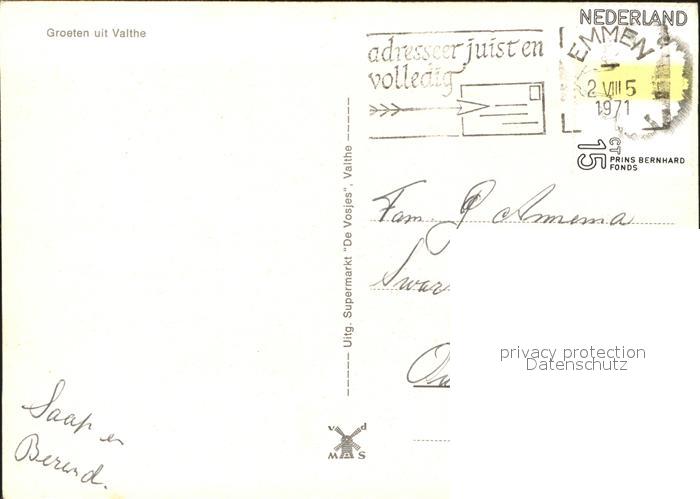 Groeten uit Valthe
NEDERLAND
adresseer juist en
volledig
EMMEN
2 VIII 5
1971
15 CT
PRINS BERNHARD
FONDS
Uitg. Supermarkt "De Vosjes", Valthe
Fam. P Annema
Swar
privacy protection
Datenschutz
Jaap en
Berend.
v d
M S